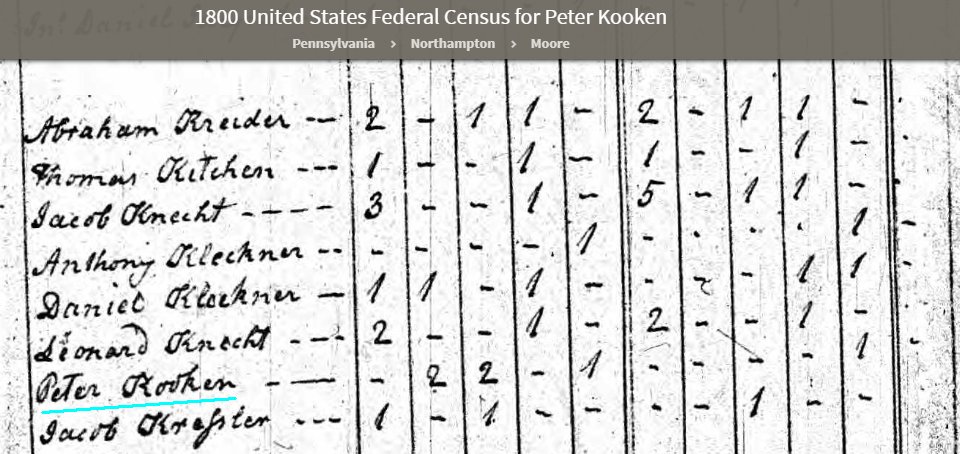 1800 United States Federal Census for Peter Kooken
Pennsylvania > Northampton > Moore
Abraham Kreider -- 2 - 1 1 - 2 - 1 1 -
Thomas Kitchen --- 1 - - 1 - 1 - - 1 -
Jacob Knecht ---- 3 - - 1 - 5 - 1 1 -
Anthony Kleckner -- - - - - 1 - . . . 1 -
Daniel Kleckner - 1 1 - 1 - - - - 1 1 -
Leonard Knecht --- 2 - - 1 - 2 - - 1 -
Peter Kooken - — - 2 2 - 1 - - - - 1 -
Jacob Kreſsler --- 1 - 1 - - - - 1 - -